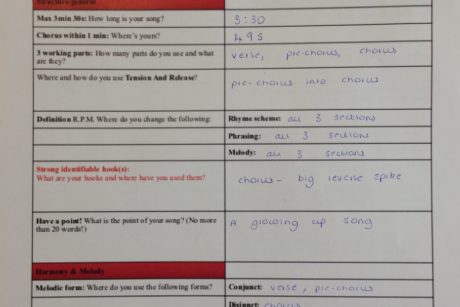 Structure/general
Max 3 min 30s: How long is your song? 3:30
Chorus within 1 min: Where's yours? 49s
3 working parts: How many parts do you use and what are they? verse, pre-chorus, chorus
Where and how do you use Tension And Release? pre-chorus into chorus
Definition R.P.M. Where do you change the following: Rhyme scheme: all 3 sections
Phrasing: all 3 sections
Melody: all 3 sections
Strong identifiable hook(s):
What are your hooks and where have you used them? chorus - big reverse spike
Have a point! What is the point of your song? (No more than 20 words!) A growing up song
Harmony & Melody
Melodic form: Where do you use the following forms? Conjunct: verse, pre-chorus
Disjunct: chorus